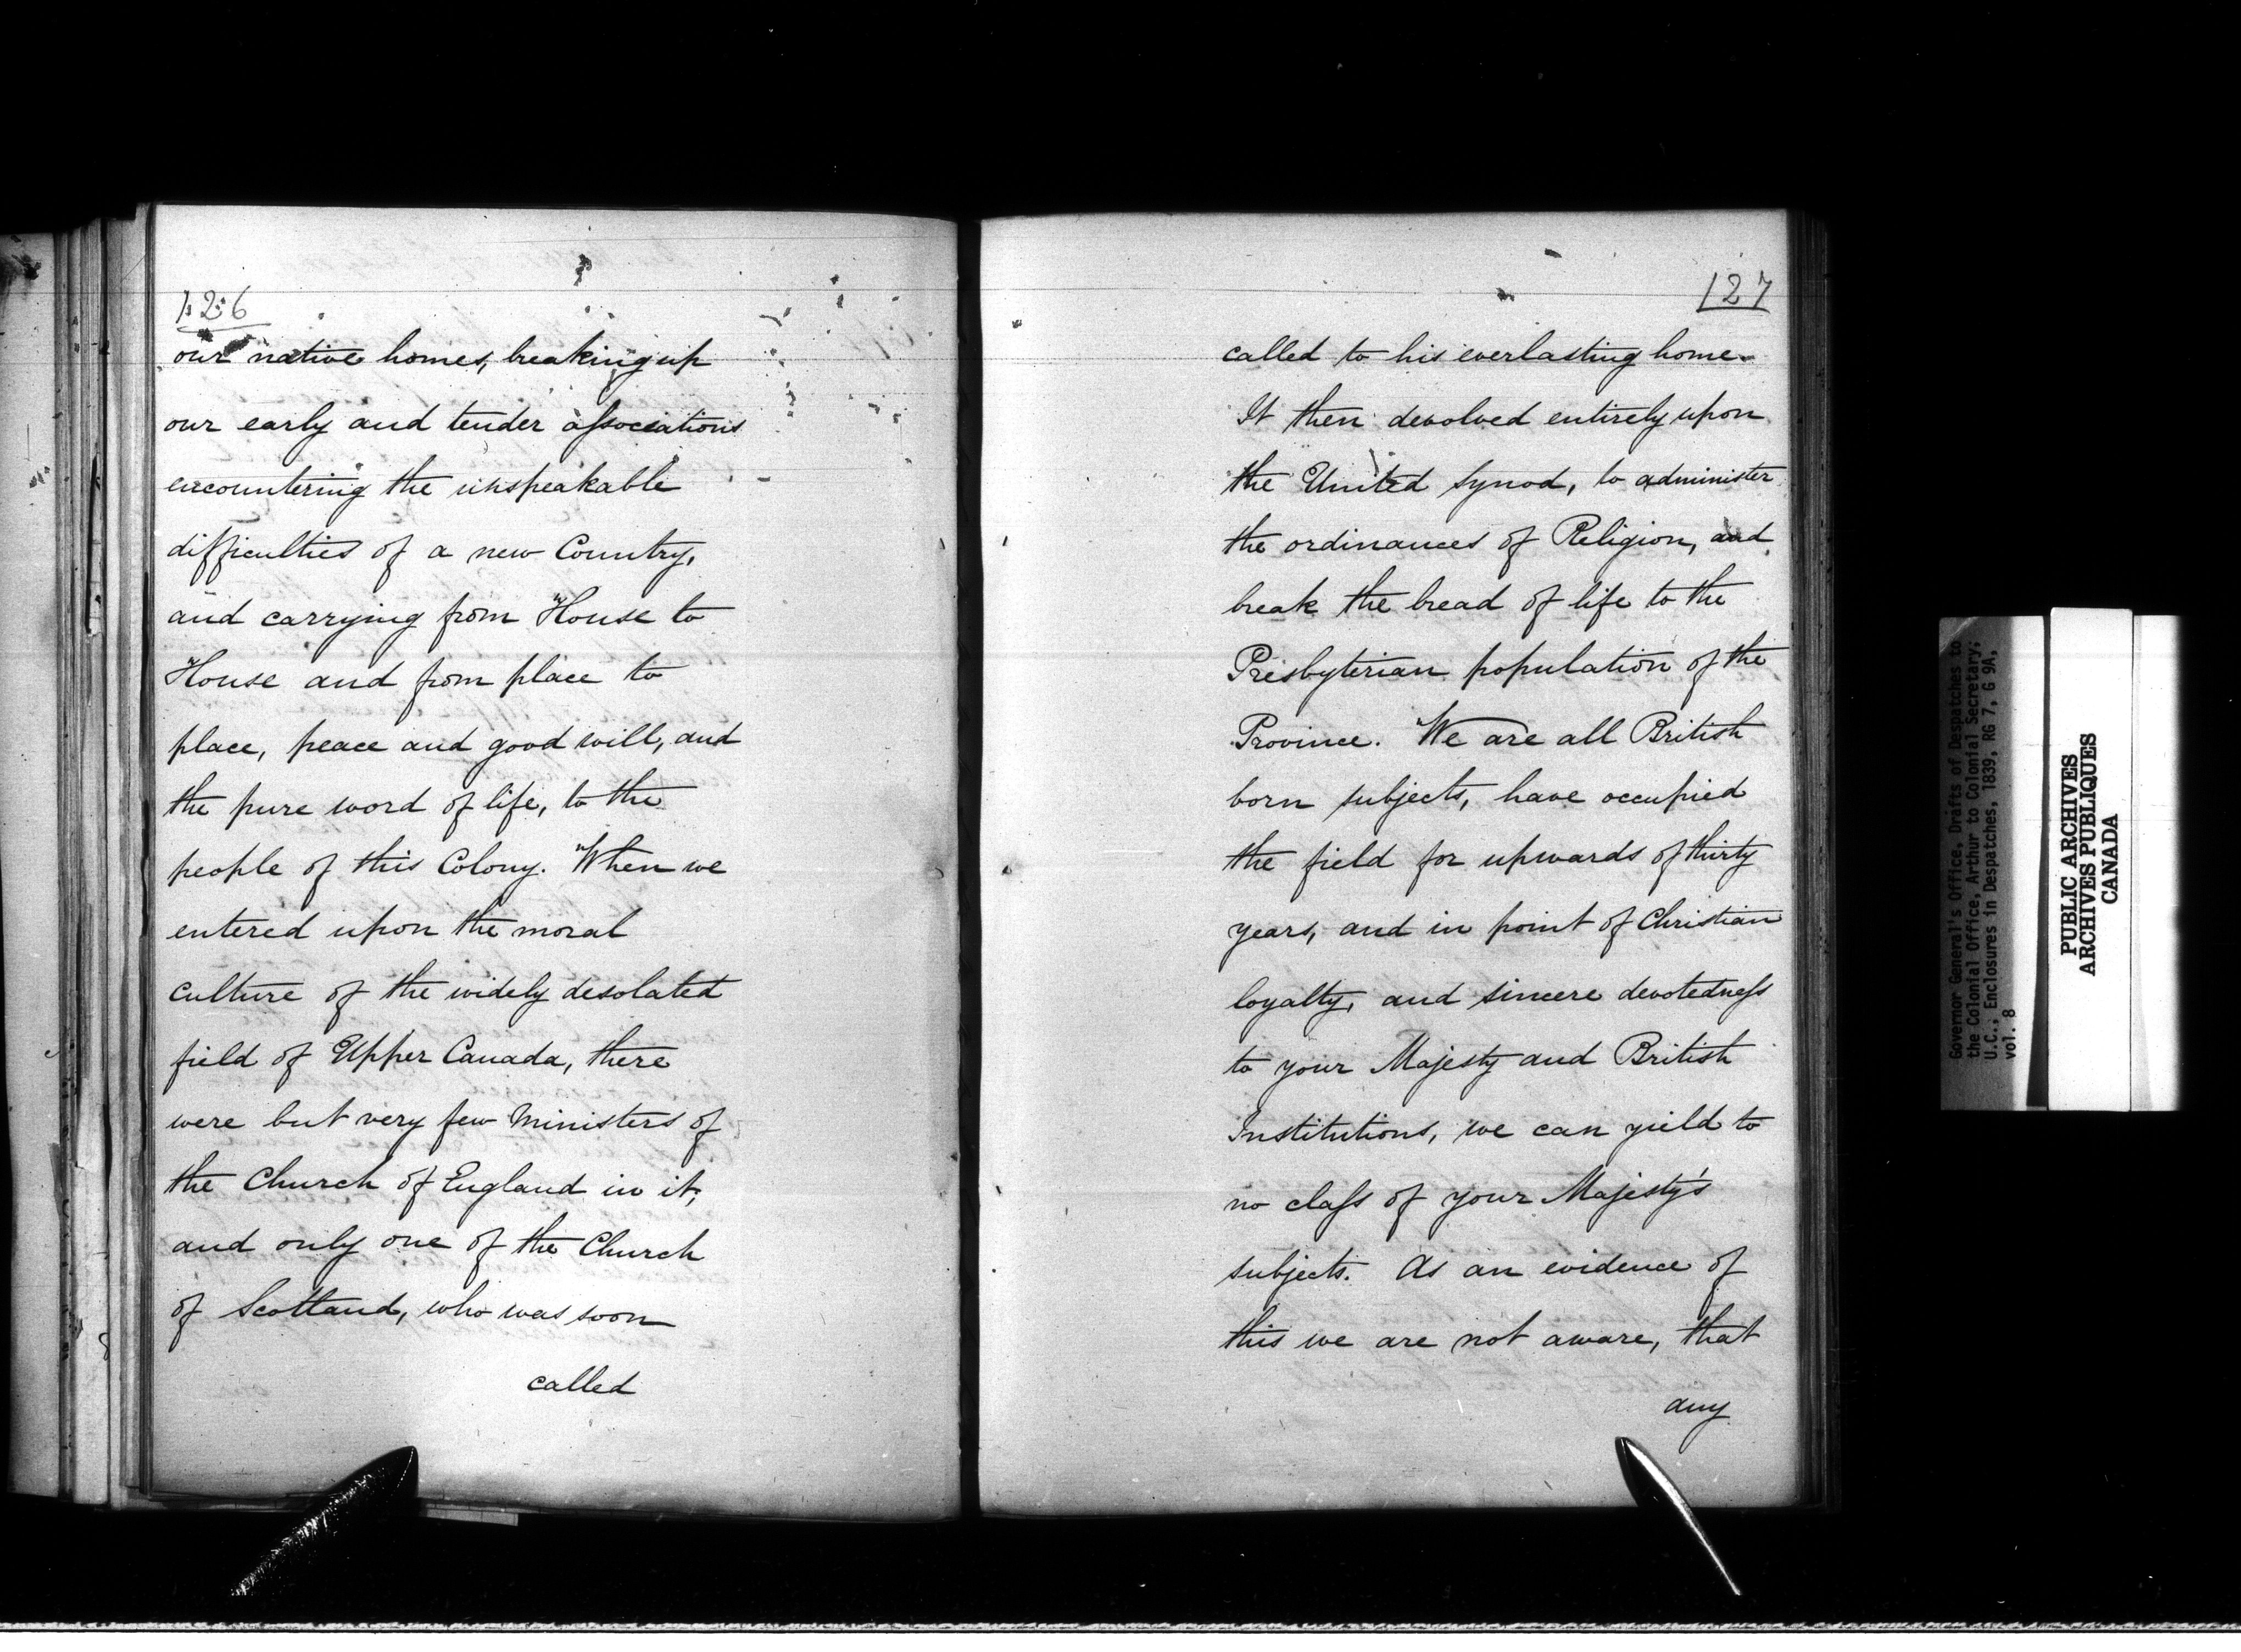 126
our native homes, breaking up
our early and tender aſsociations
encountering the unspeakable
difficulties of a new Country,
and carrying from House to
House and from place to
place, peace and good will, and
the pure word of life, to the
people of this Colony. When we
entered upon the moral
culture of the widely desolated
field of Upper Canada, there
were but very few Ministers of
the Church of England in it,
and only one of the Church
of Scotland, who was soon
called
127
called to his everlasting home.
It then devolved entirely upon
the United Synod, to administer
the ordinances of Religion, and
break the bread of life to the
Presbyterian population of the
Province. We are all British
born subjects, have occupied
the field for upwards of thirty
years, and in point of Christian
loyalty, and sincere devotedneſs
to your Majesty and British
Institutions, we can yield to
no claſs of your Majesty's
subjects. As an evidence of
this we are not aware, that
any
Governor General's Office, Drafts of Despatches to
the Colonial Office, Arthur to Colonial Secretary;
U.C., Enclosures in Despatches, 1839, RG 7, G 9A,
vol. 8
PUBLIC ARCHIVES
ARCHIVES PUBLIQUES
CANADA